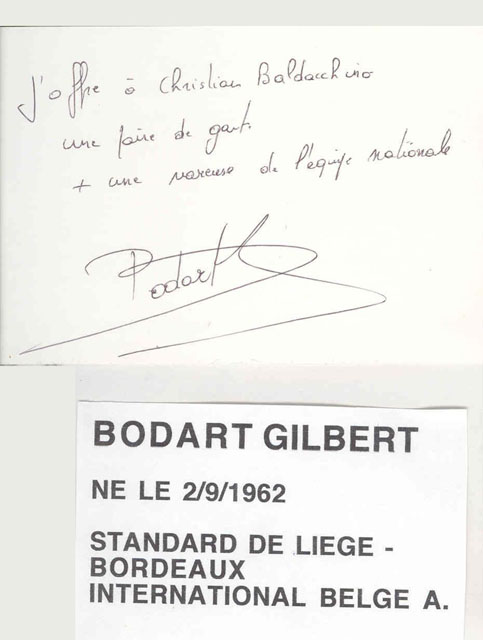 J'offre à Christian Baldacchino
une paire de gants
+ une vareuse de l'équipe nationale
Bodart
BODART GILBERT
NE LE 2/9/1962
STANDARD DE LIEGE -
BORDEAUX
INTERNATIONAL BELGE A.